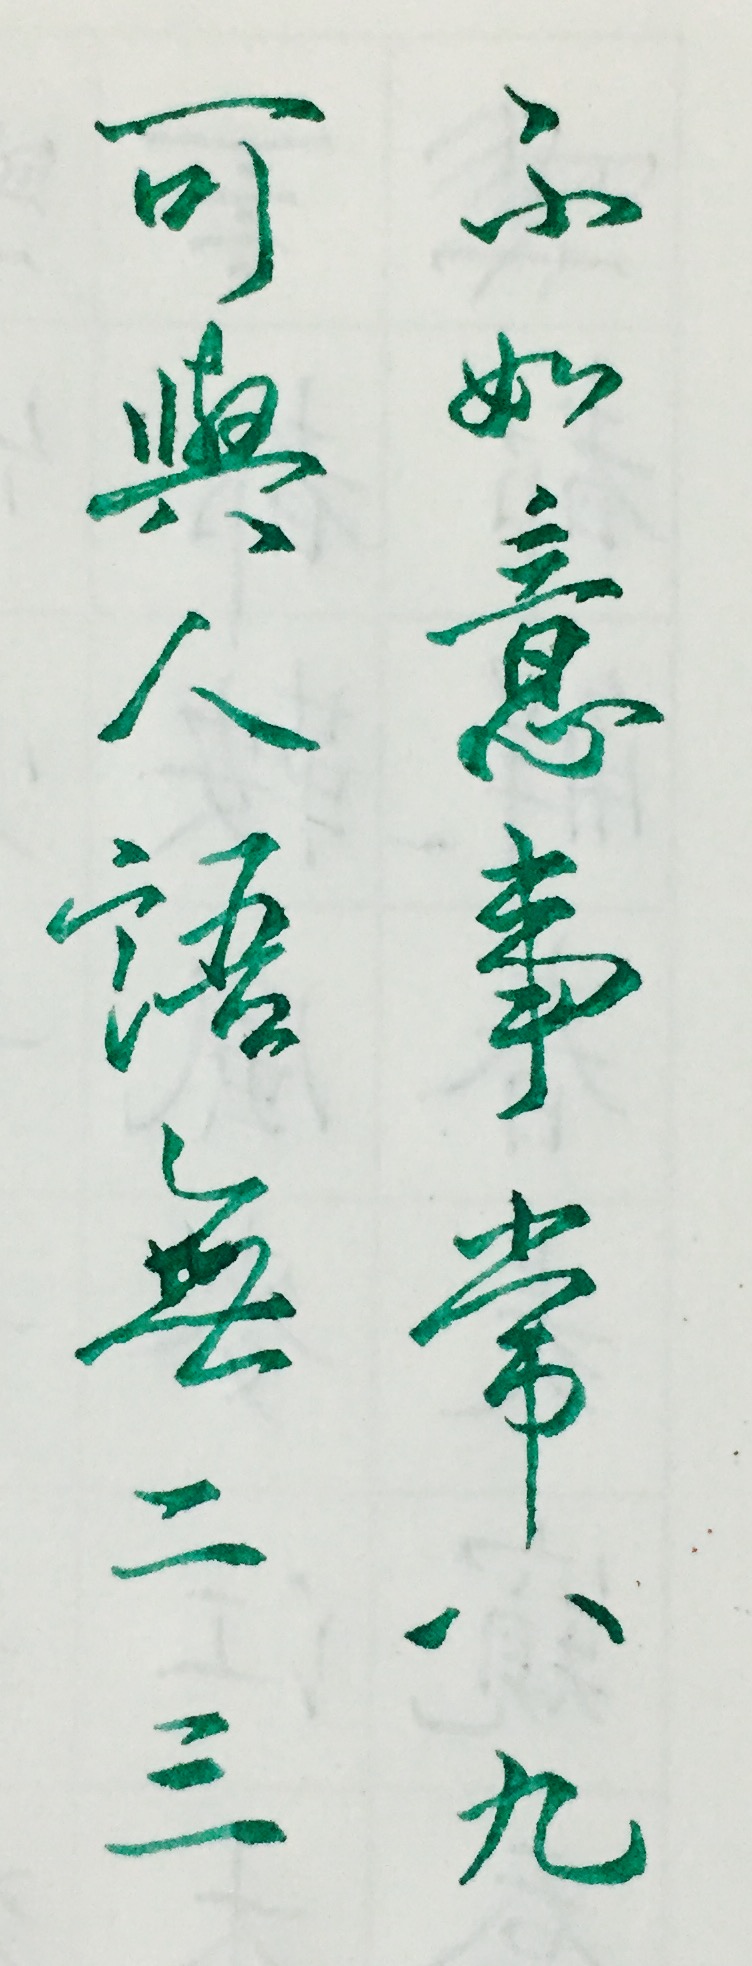 不如意事常八九
可與人語無二三